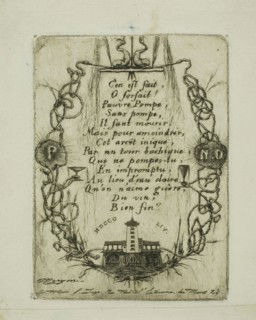 C'en est fait,
O forfait!
Pauvre Pompe,
Sans pompe,
Il faut mourir!
Mais pour amoindrir,
Cet arrêt inique,
Par un tour bachique,
Que ne pompes-tu,
En impromptu,
Au lieu d'eau claire
Qu'on n'aime guère,
Du vin,
Bien fin?
P
N.D
MDCCC LIV